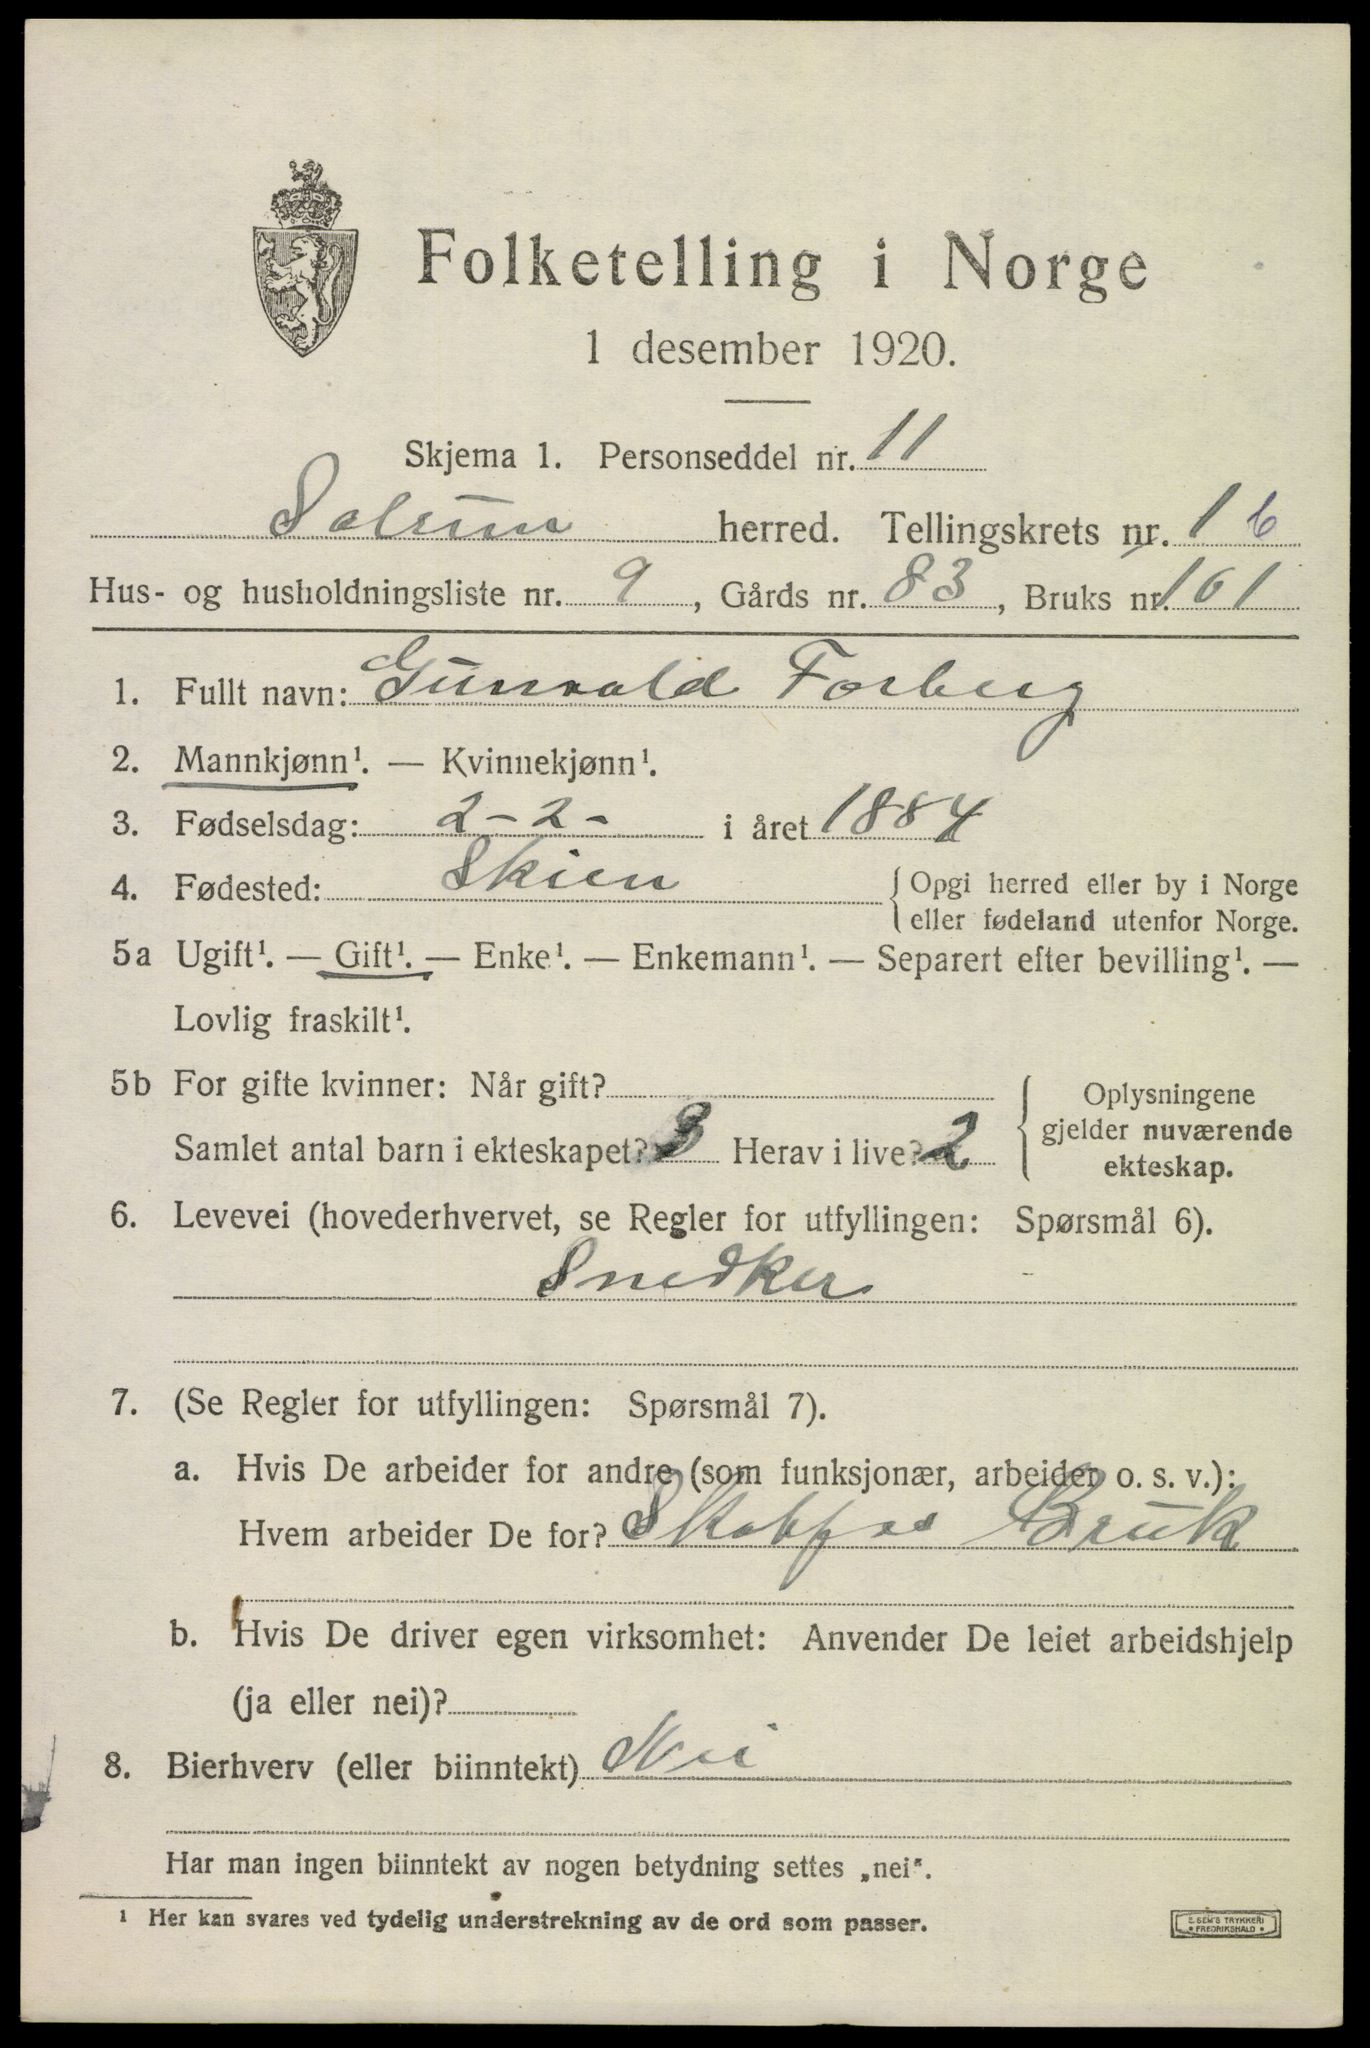 Folketelling i Norge
1 desember 1920.
Skjema 1. Personseddel nr. 11
Solum herred. Tellingskrets nr. 1 6
Hus- og husholdningsliste nr. 9, Gårds nr. 83, Bruks nr. 161
1. Fullt navn: Gunvald Forberg
2. Mannkjønn¹. — Kvinnekjønn¹.
3. Fødselsdag: 2-2- i året 1884
4. Fødested: Skien { Opgi herred eller by i Norge
eller fødeland utenfor Norge.
5a Ugift¹. — Gift¹. — Enke¹. — Enkemann¹. — Separert efter bevilling¹. —
Lovlig fraskilt¹.
5b For gifte kvinner: Når gift?
Samlet antal barn i ekteskapet? 3 Herav i live? 2
{ Oplysningene
gjelder nuværende
ekteskap.
6. Levevei (hovederhvervet, se Regler for utfyllingen: Spørsmål 6).
Snedker
7. (Se Regler for utfyllingen: Spørsmål 7).
a. Hvis De arbeider for andre (som funksjonær, arbeider o. s. v.):
Hvem arbeider De for? Skotfos Bruk
b. Hvis De driver egen virksomhet: Anvender De leiet arbeidshjelp
(ja eller nei)?
8. Bierhverv (eller biinntekt) Nei
Har man ingen biinntekt av nogen betydning settes „nei".
¹ Her kan svares ved tydelig understrekning av de ord som passer.
E. SEM'S TRYKKERI
• FREDRIKSHALD •